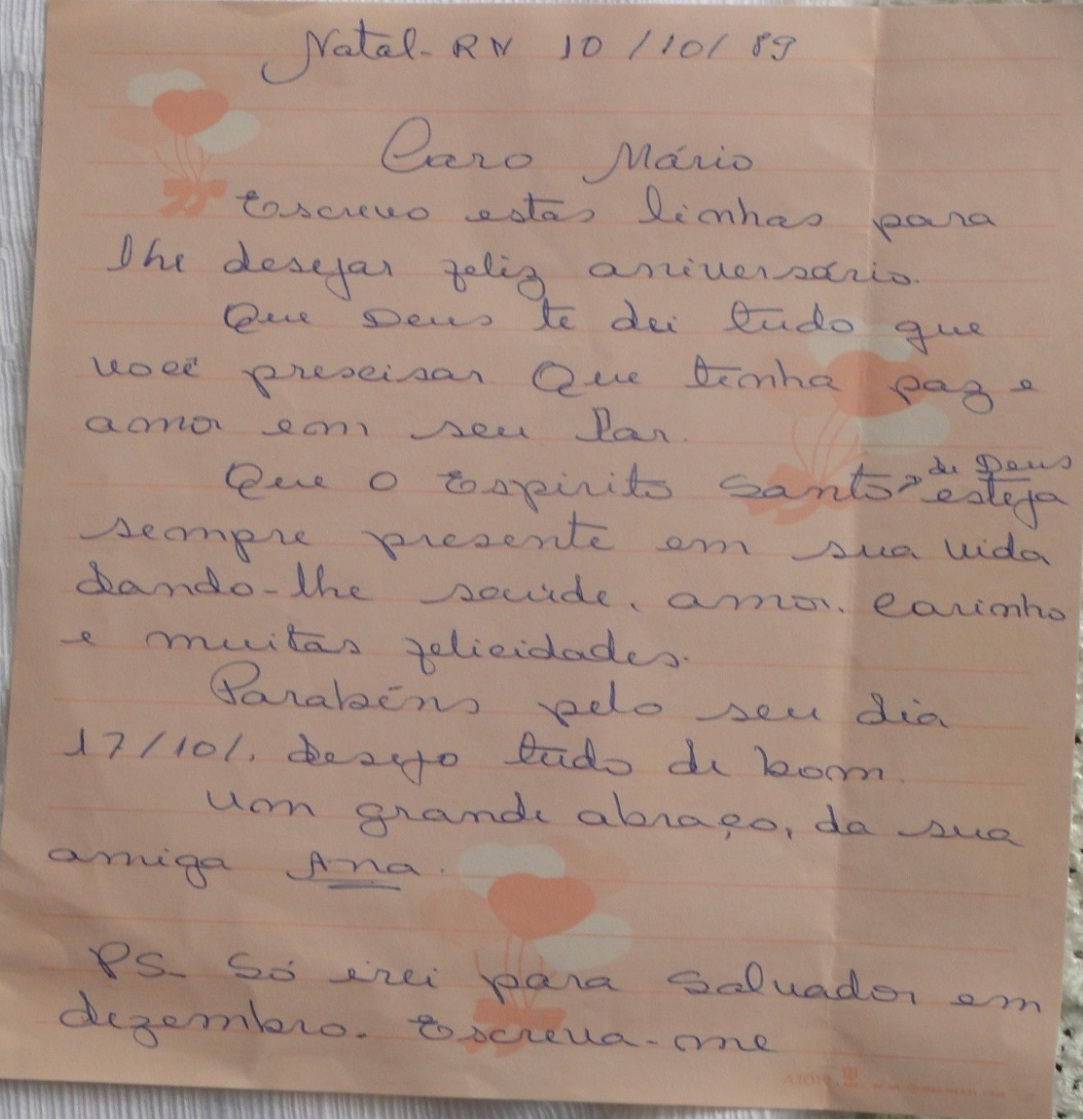 Natal-RN 10/10/89
Caro Mário
Escrevo estas linhas para
lhe desejar feliz aniversário.
Que Deus te dei tudo que
você prescisar. Que tenha paz e
amor em seu lar.
Que o Espirito Santo de Deus esteja
sempre presente em sua vida
dando-lhe saúde, amor, carinho
e muitas felicidades.
Parabéns pelo seu dia
17/10/. desejo tudo de bom.
Um grande abraço, da sua
amiga Ana.
PS- Só irei para Salvador em
dezembro. Escreva-me